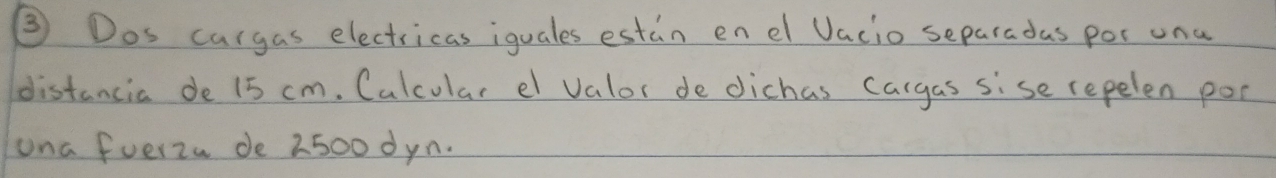 ③ Dos cargas electricas iguales están en el Vacio separadas por una
distancia de 15 cm. Calcular el valor de dichas cargas si se repelen por
una fuerza de 2500 dyn.